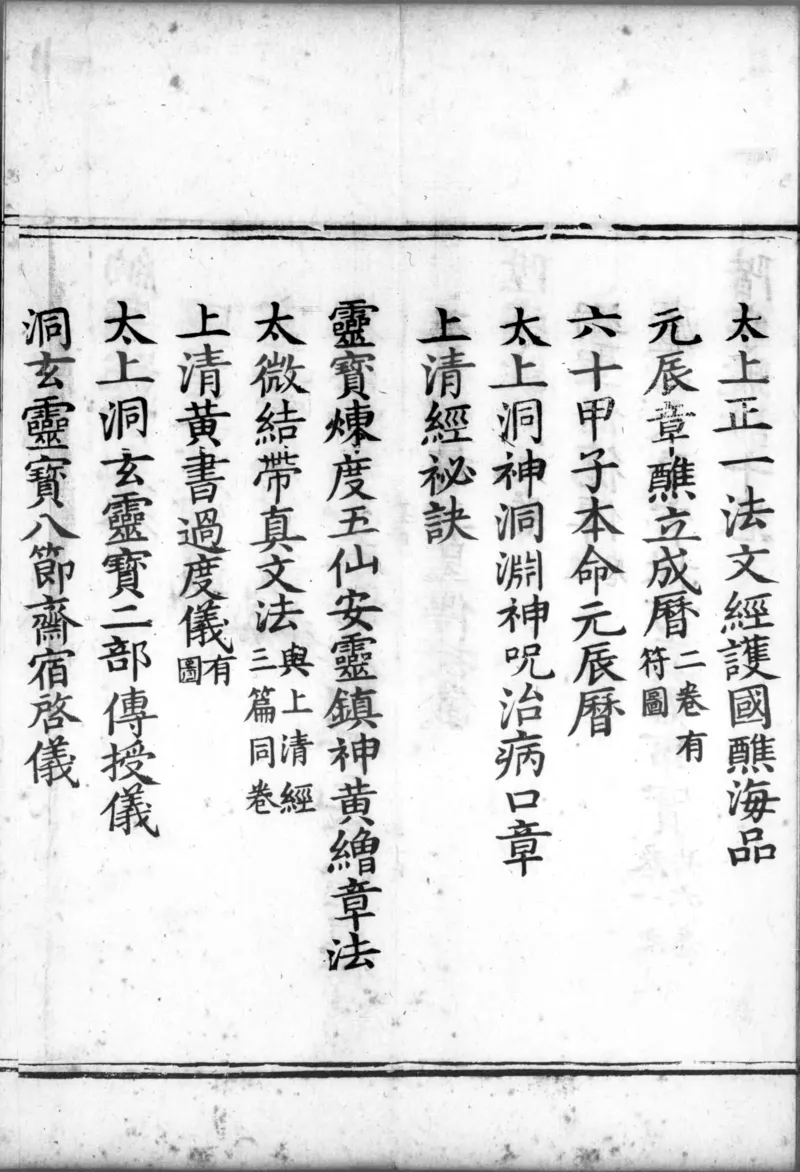 太上正一法文經護國醮海品
元辰章醮立成曆二卷有符圖
六十甲子本命元辰曆
太上洞神洞淵神呪治病口章
上清經祕訣
靈寶煉度五仙安靈鎮神黃繒章法
太微結帶真文法與上清經三篇同卷
上清黃書過度儀有圖
太上洞玄靈寶二部傳授儀
洞玄靈寶八節齋宿啓儀